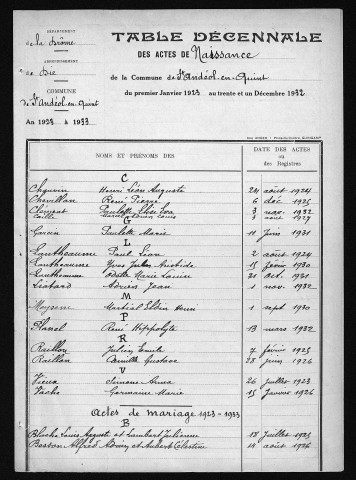 DÉPARTEMENT
de la Drôme
ARRONDISSEMENT
de Die
COMMUNE
de St Andéol-en-Quint
An 1923 à 1933
TABLE DÉCENNALE
DES ACTES DE Naissance
de la Commune de St Andéol-en-Quint
du premier Janvier 1923 au trente et un Décembre 1932
NOMS ET PRÉNOMS DES
DATE DES ACTES
ou des Registres
C
Chevillan René Pierre 6 déc. 1925
Paulette 3 nov. 1932
G
Garcin Paulette Marie 11 juin 1931
L
Lantheaume Paul Léon 2 août 1924
Lantheaume Yves Jules Aristide 15 février 1930
Lantheaume Odette Marie Louise 21 oct. 1931
Liotard Adrien Jean 1 nov. 1932
M
Martial 1 sept 1930
P
Planel René Hippolyte 13 mars 1932
R
Raillon Julien Emile 7 févier 1925
Raillon Camille Gustave 28 juin 1926
V
Vieux Simone Anna 26 juillet 1923
Vache Germaine Marie 15 Janvier 1926
actes de mariage 1923 - 1933
B
Blache Louis Auguste et Lambert Julienne 18 Juillet 1925
Bosson Alfred et Aubert Célestine 14 août 1926